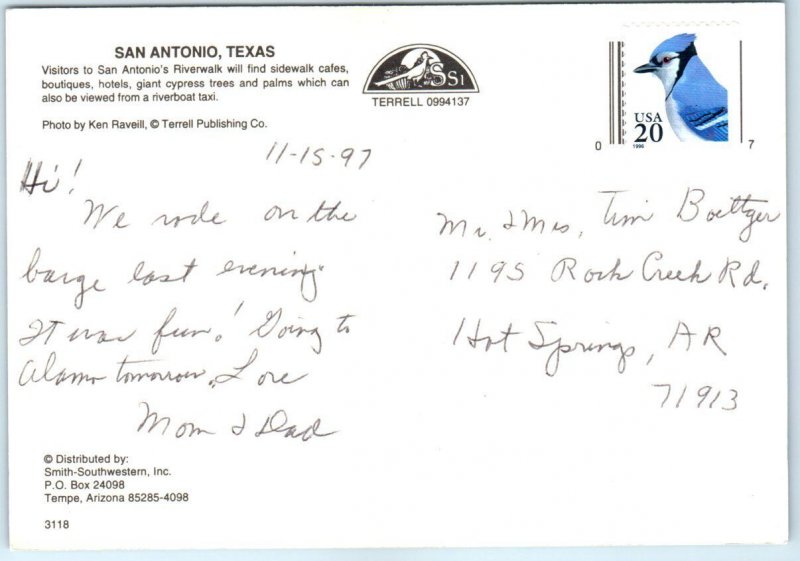 SAN ANTONIO, TEXAS
Visitors to San Antonio's Riverwalk will find sidewalk cafes,
boutiques, hotels, giant cypress trees and palms which can
also be viewed from a riverboat taxi.
Photo by Ken Raveill, © Terrell Publishing Co.
SS1
TERRELL 0994137
USA
20
1996
0 7
11-15-97
Hi!
We rode on the
barge last evening.
It was fun! Going to
Alamo tomorrow. Love
Mom & Dad
Mr. & Mrs. Tim Boettger
1195 Rock Creek Rd.
Hot Springs, AR
71913
© Distributed by:
Smith-Southwestern, Inc.
P.O. Box 24098
Tempe, Arizona 85285-4098
3118